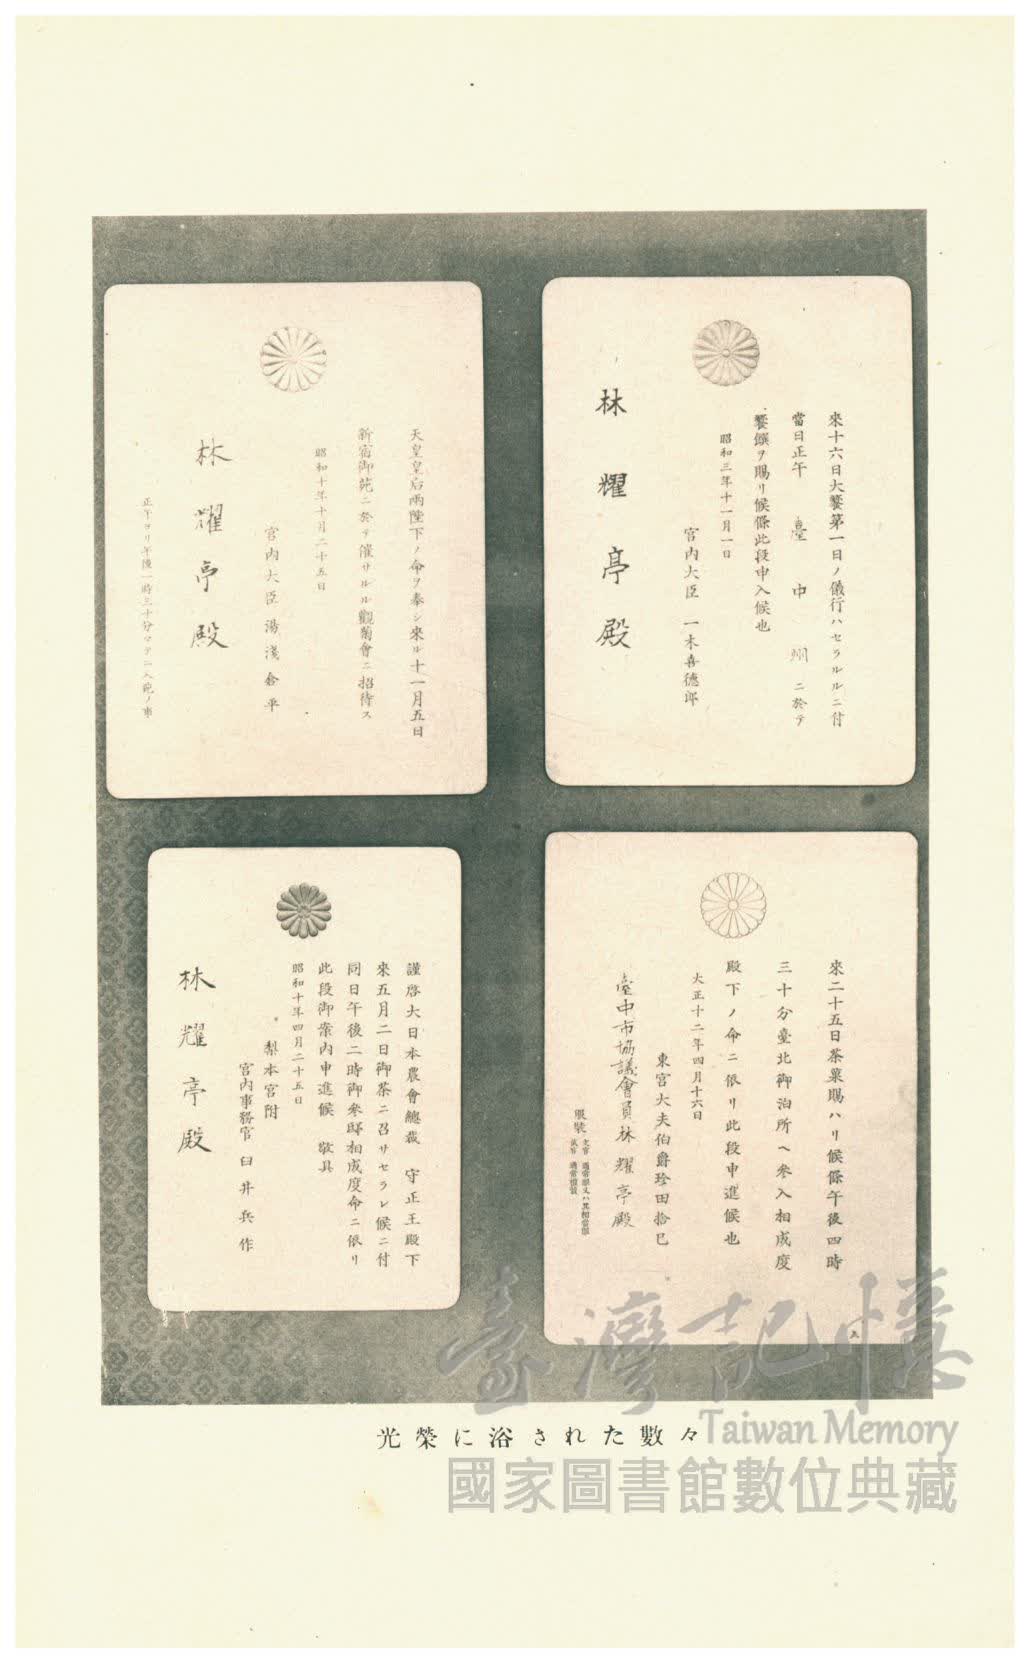 來十六日大饗第一日ノ儀行ハセラルルニ付
當日正午 臺中州ニ於テ
饗饌ヲ賜リ候條此段申入候也
昭和三年十一月一日
宮內大臣 一木喜德郎
林耀亭殿
天皇皇后兩陛下ノ命ヲ奉シ來ル十一月五日
新宿御苑ニ於テ催サルル觀菊會ニ招待ス
昭和十年十月二十五日
宮內大臣 湯淺倉平
林耀亭殿
正午ヨリ午後一時三十分マテニ入苑ノ事
來二十五日茶菓賜ハリ候條午後四時
三十分臺北御泊所ヘ參入相成度
殿下ノ命ニ依リ此段申進候也
大正十二年四月十六日
東宮大夫伯爵珍田捨巳
臺中市協議會員林耀亭殿
服裝 文官 通常服又ハ其相當服
武官 通常禮裝
謹啓大日本農會總裁 守正王殿下
來五月二日御茶ニ召サセラレ候ニ付
同日午後二時御參邸相成度命ニ依リ
此段御案內申進候 敬具
昭和十年四月二十五日
梨本宮附
宮內事務官 臼井兵作
林耀亭殿
光榮に浴された數々
臺灣記憶
Taiwan Memory
國家圖書館數位典藏